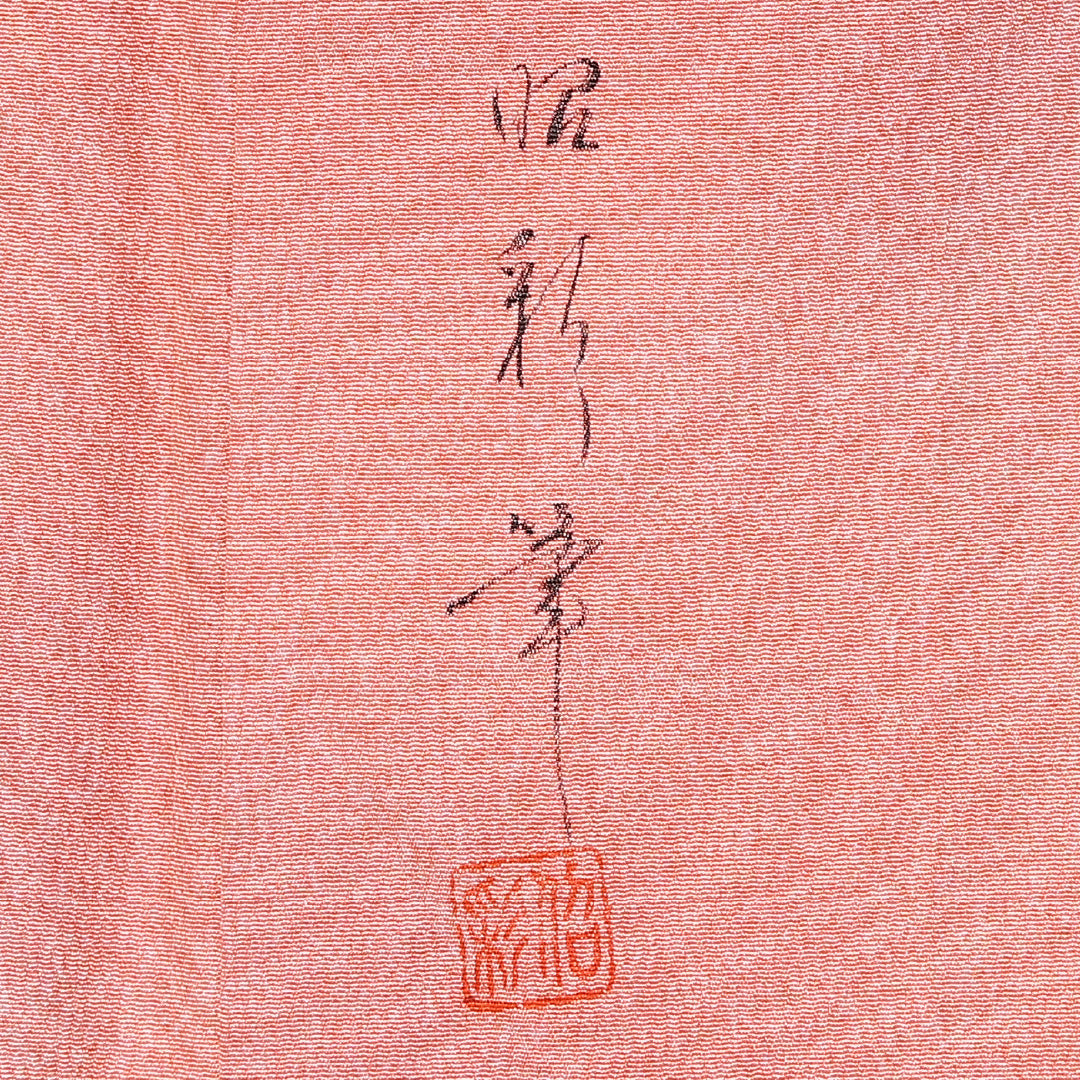 昭彩筆
昭彩